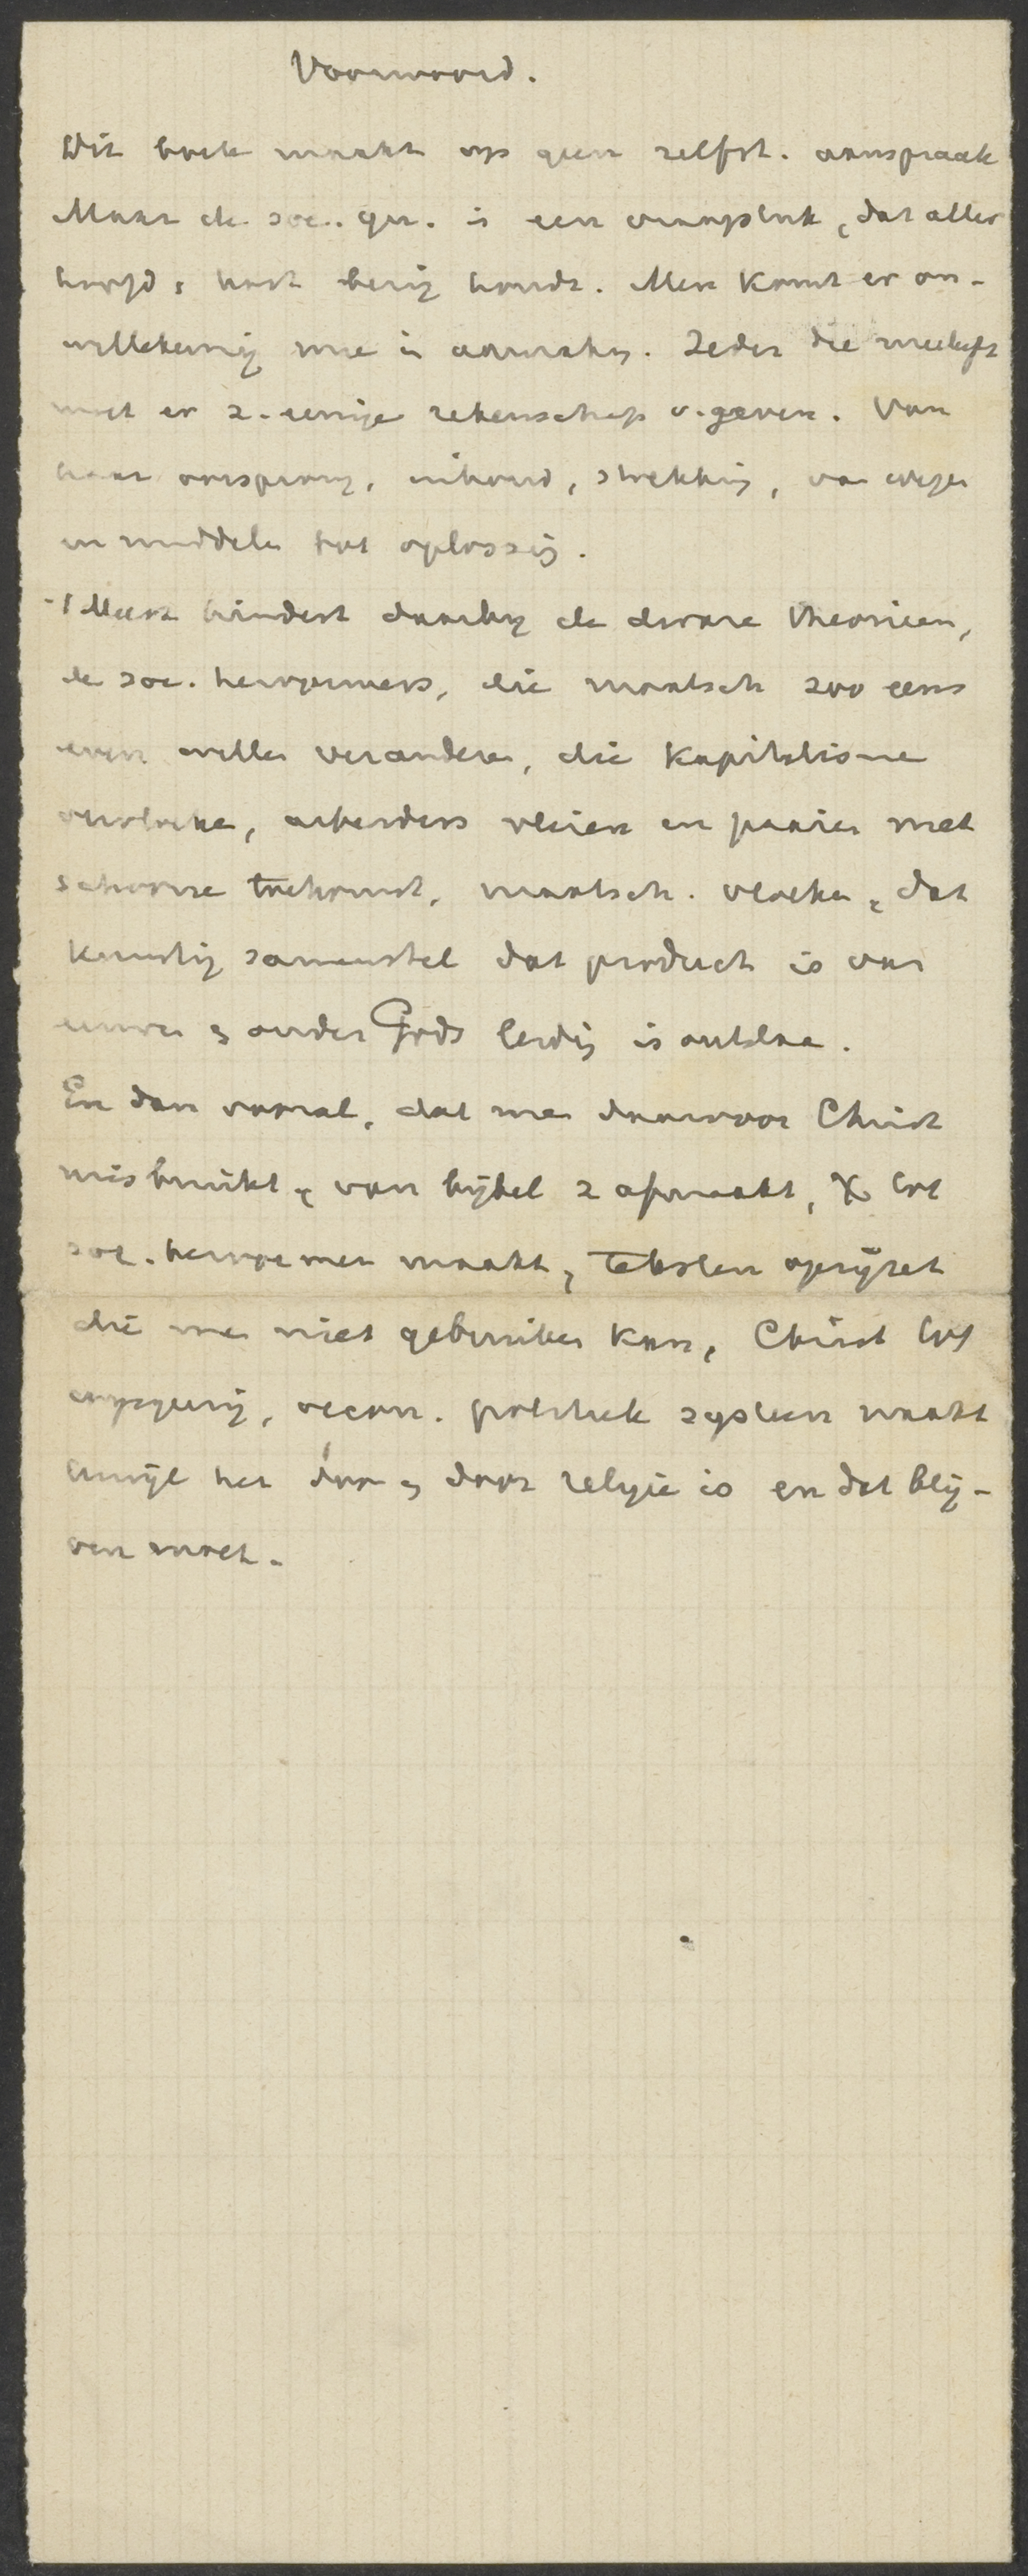 Voorwoord.
Dit boek maakt op geen zelfst. aanspraak
Maar de soc. qu. is een vraagstuk, dat aller
hoofd & hart bezig houdt. Men komt er on-
willekeurig mee in aanraking. Ieder die meeleeft
moet er z. eenige rekenschap v. geven. Van
haar oorsprong, inhoud, strekking, van wegen
en middelen tot oplossing.
't Meest hindert daarby de dwaze theorieen,
de soc. hervormers, die maatsch zoo eens
even willen veranderen, die Kapitalisme
arbeiders vleien en paaien met
schoone toekomst, maatsch. vloeken, dat
kunstig samenstel dat product is van
eeuwen & onder Gods leidig is ontstaan.
En dan vooral, dat men daarvoor Christ
misbruikt & van bybel z afmaakt, X tot
soc. hervormer maakt, teksten opzyzet
die men niet gebruiken kan, Christ tot
wysgeerig, oecon. politiek systeem maakt
terwijl het door & door religie is en dat blij-
ven moet.